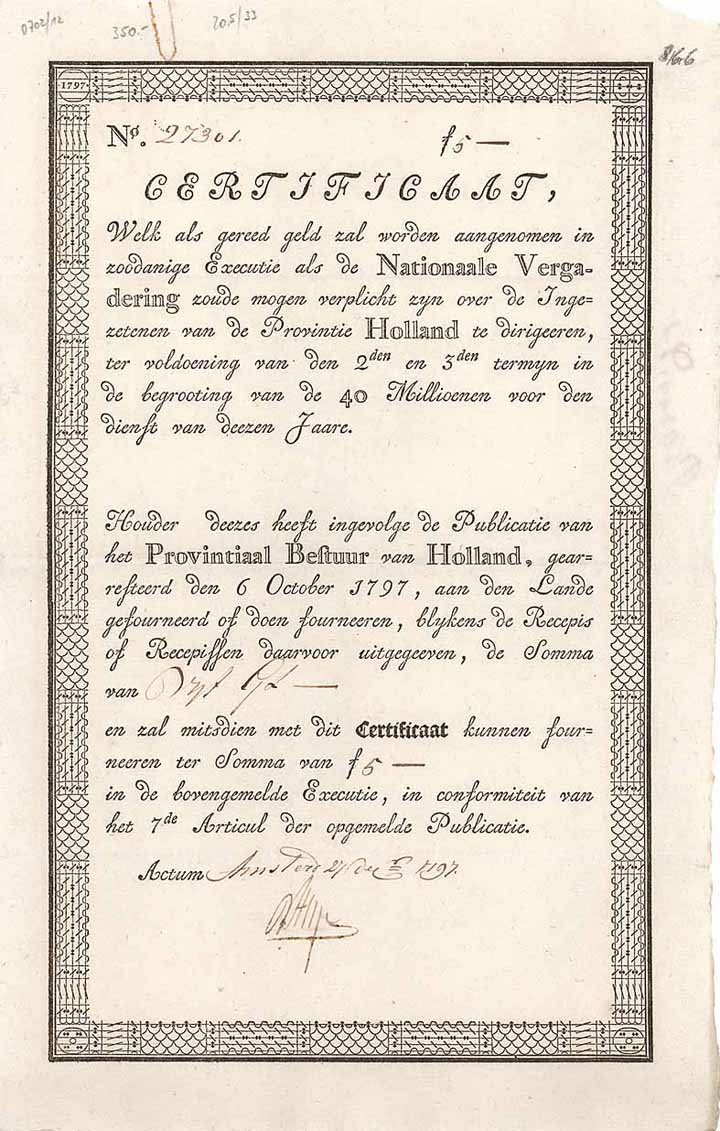 0702/12 350.- 20.5/33
1797
Nº. 27301. f5 —
CERTIFICAAT,
Welk als gereed geld zal worden aangenomen in
zoodanige Executie als de Nationaale Verga-
dering zoude mogen verplicht zyn over de Inge=
zetenen van de Provintie Holland te dirigeeren,
ter voldoening van den 2den en 3den termyn in
de begrooting van de 40 Millioenen voor den
dienſt van deezen Jaare.
Houder deezes heeft ingevolge de Publicatie van
het Provintiaal Beſtuur van Holland, gear=
reſteerd den 6 October 1797, aan den Lande
gefourneerd of doen fourneeren, blykens de Recepis
of Recepiſſen daarvoor uitgegeeven, de Somma
van Vyf
en zal mitsdien met dit Certificaat kunnen four=
neeren ter Somma van f5 —
in de bovengemelde Executie, in conformiteit van
het 7de Articul der opgemelde Publicatie.
Actum 1797.